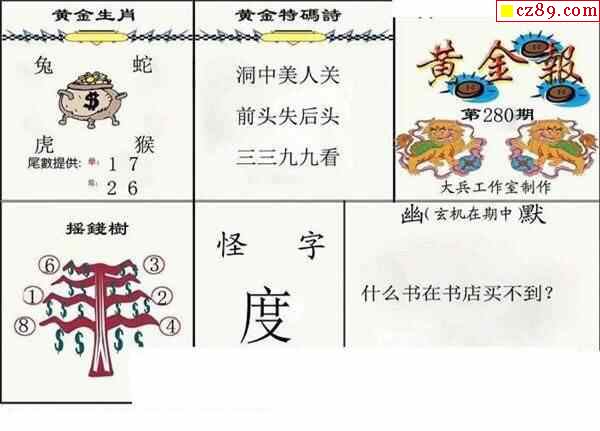 cz89.com
黄金生肖
兔 蛇
虎 猴
尾數提供: 单: 1 7
2 6
黄金特碼詩
洞中美人关
前头失后头
三三九九看
黄金報
第280期
大兵工作室制作
摇錢樹
⑥ ③
① ②
⑧ ④
$
怪字
度
幽(玄机在期中)默
什么书在书店买不到?